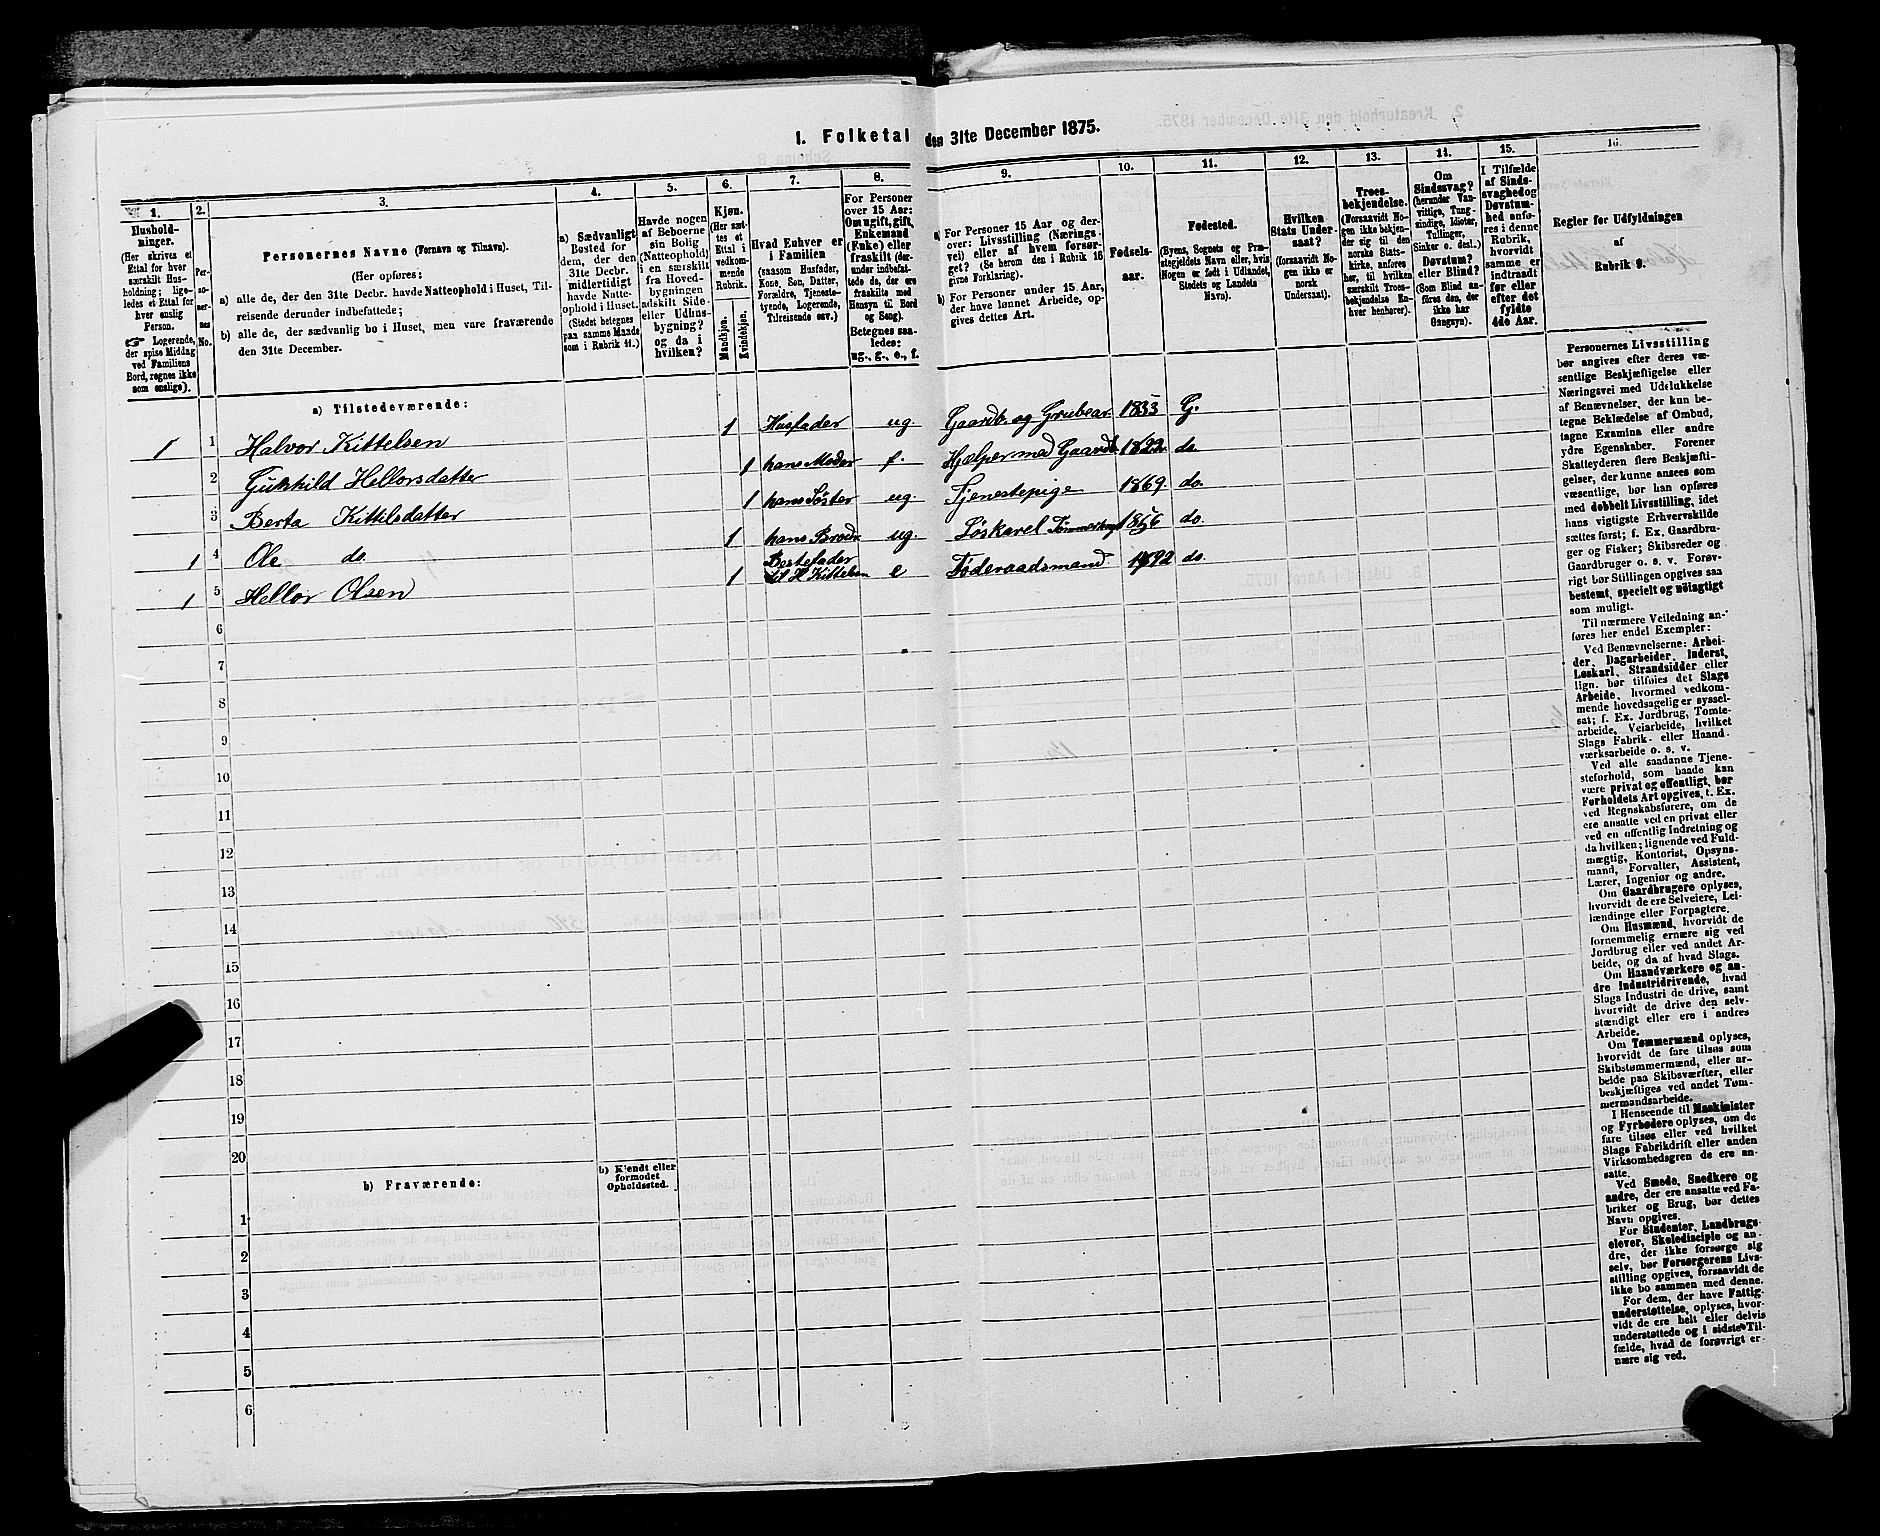 1. Folketal den 31te December 1875.
1.
Hushold-
ninger.
(Her skrives et
Ettal for hver
særskilt Hus-
holdning; lige-
ledes et Ettal for
hver enslig
Person.
☞ Logerende,
der spise Middag
ved Familiens
Bord, regnes ikke
som enslige).
2.
Per-
so-
ner-
nes
No.
3.
Personernes Navne (Fornavn og Tilnavn).
(Her opføres:
a) alle de, der den 31te Decbr. havde Natteophold i Huset, Til-
reisende derunder indbefattede;
b) alle de, der sædvanlig bo i Huset, men vare fraværende
den 31te December.
4.
a) Sædvanligt
Bosted for
dem, der den
31te Decbr.
midlertidigt
havde Natte-
ophold i Huset.
(Stedet betegnes
paa samme Maade
som i Rubrik 11.)
5.
Havde nogen
af Beboerne
sin Bolig
(Natteophold)
i en særskilt
fra Hoved-
bygningen
adskilt Side-
eller Udhus-
bygning?
og da i
hvilken?
6.
Kjøn.
(Her sæt-
tes et
Ettal i
vedkom-
mende
Rubrik.
Mandkjøn.
Kvindekjøn.
7.
Hvad Enhver er
i Familien
(saasom Husfader,
Kone, Søn, Datter,
Forældre, Tjeneste-
tyende, Logerende,
Tilreisende osv.)
8.
For Personer
over 15 Aar:
Om ugift, gift,
Enkemand
(Enke) eller
fraskilt (der-
under indbefat-
tede de, der ere
fraskilte med
Hensyn til Bord
og Seng).
Betegnes saa-
ledes:
ug., g., e., f.
9.
a) For Personer 15 Aar og der-
over: Livsstilling (Nærings-
vei) eller af hvem forsør-
get? (Se herom den i Rubrik 16
givne Forklaring).
b) For Personer under 15 Aar,
der have lønnet Arbeide, op-
gives dettes Art.
10.
Fødsels-
aar.
11.
Fødested.
(Byens, Sognets og Præ-
stegjeldets Navn eller, hvis
Nogen er født i Udlandet,
Stedets og Landets
Navn).
12.
Hvilken
Stats Under-
saat?
(forsaavidt No-
gen ikke er
norsk
Undersaat).
13.
Troes-
bekjendelse.
(Forsaavidt No-
gen ikke bekjen-
der sig til den
norske Stats-
kirke, anføres
her, til hvilken
særskilt Troes-
bekjendelse En-
hver henhører).
14.
Om
Sindssvag?
(herunder Van-
vittige, Tung-
sindige, Idioter,
Tullinger,
Sinker o. desl.)
Døvstum?
eller Blind?
(Som Blind an-
føres den, der
ikke har
Gangsyn).
15.
I Tilfælde
af Sinds-
svaghed og
Døvstum-
hed anfø-
res i denne
Rubrik,
hvorvidt
samme er
indtraadt
før eller
efter det
fyldte
4de Aar.
16.
Regler for Udfyldningen
af
Rubrik 9.
a) Tilstedeværende:
1 1 Halvor Kittelsen 1 Husfader ug. Gaardb. og Grubear. 1853 G.
2 Gunhild Hellorsdatter 1 hans Moder f. Hjælper med Gaardb. 1822 do.
3 Berta Kittilsdatter 1 hans Søster ug. Tjenestepige 1869. do.
1 4 Ole do. 1 hans Broder ug. Løskarel Tømmerhug 1856 do.
1 5 Hellor Olsen 1 Bestefader
til H Kittelsen e Føderaadsmand 1792 do.
6
7
8
9
10
11
12
13
14
15
16
17
18
19
20
b) Fraværende:
b) Kjendt eller
formodet
Opholdssted.
1
2
3
4
5
6
Personernes Livsstilling
bør angives efter deres væ-
sentlige Beskjæftigelse eller
Næringsvei med Udelukkelse
af Benævnelser, der kun be-
tegne Beklædelse af Ombud,
tagne Examina eller andre
ydre Egenskaber. Forener
Skatteyderen flere Beskjæfti-
gelser, der kunne ansees som
væsentlige, bør han opføres
med dobbelt Livsstilling, idet
hans vigtigste Erhvervskilde
sættes først; f. Ex. Gaardbru-
ger og Fisker; Skibsreder og
Gaardbruger o. s. v. Forøv-
rigt bør Stillingen opgives saa
bestemt, specielt og nøiagtigt
som muligt.
Til nærmere Veiledning an-
føres her endel Exempler:
Ved Benævnelserne: Arbei-
der, Dagarbeider, Inderst,
Løskarl, Strandsidder eller
lign. bør tilføies det Slags
Arbeide, hvormed vedkom-
mende hovedsagelig er syssel-
sat; f. Ex. Jordbrug, Tomte-
arbeide, Veiarbeide, hvilket
Slags Fabrik- eller Haand-
værksarbeide o. s. v.
Ved alle saadanne Tjene-
steforhold, som baade kan
være privat og offentligt, bør
Forholdets Art opgives, t. Ex.
ved Regnskabsførere, om de
ere ansatte ved en privat eller
ved en offentlig Indretning og
da hvilken; lignende ved Fuld-
mægtig, Kontorist, Opsyns-
mand, Forvalter, Assistent,
Lærer, Ingeniør og andre.
Om Gaardbrugere oplyses,
hvorvidt de ere Selveiere, Lei-
lændinge eller Forpagtere.
Om Husmænd, hvorvidt de
fornemmelig ernære sig ved
Jordbrug eller ved andet Ar-
beide, og da af hvad Slags.
Om Haandværkere og an-
dre Industridrivende, hvad
Slags Industri de drive, samt
hvorvidt de drive den selv-
stændigt eller ere i andres
Arbeide.
Om Tømmermænd oplyses,
hvorvidt de fare tilsøs som
Skibstømmermænd, eller ar-
beide paa Skibsværfter, eller
beskjæftiges ved andet Tøm-
mermandsarbeide.
I Henseende til Maskinister
og Fyrbødere oplyses, om de
fare tilsøs eller ved hvilket
Slags Fabrikdrift eller anden
Virksomhedsgren de ere an-
satte.
Ved Smede, Snedkere og
andre, der ere ansatte ved Fa-
briker og Brug, bør dettes
Navn opgives.
For Studenter, Landbrugs-
elever, Skoledisciple og an-
dre, der ikke forsørge sig
selv, bør Forsørgerens Livs-
stilling opgives, forsaavidt de
ikke bo sammen med denne.
For dem, der have Fattig-
understøttelse, oplyses, hvor-
vidt de ere helt eller delvis
understøttede og i sidste Til-
fælde, hvad de forøvrigt er-
nære sig ved.